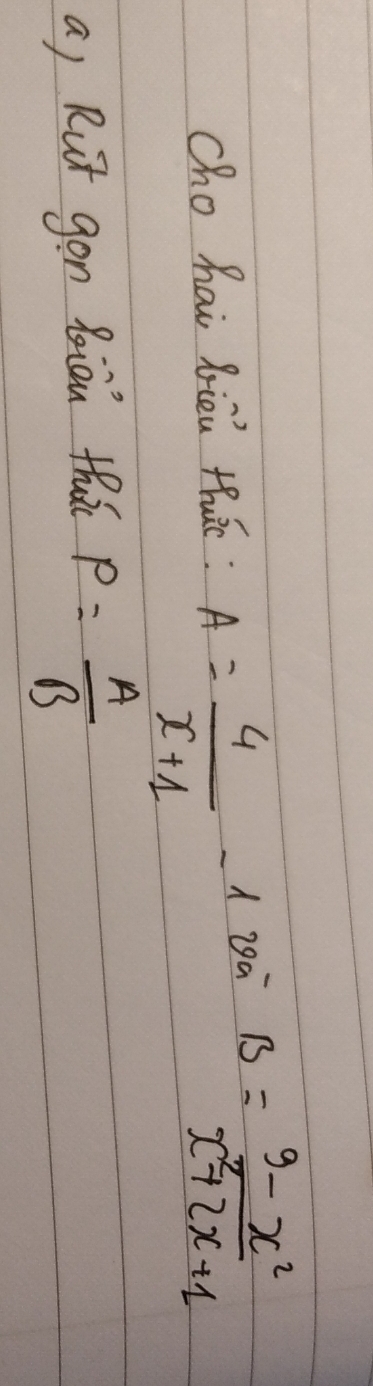 Cho hai biểu thức: A = 4/(x+1) - 1 và B = (9-x²)/(x²+2x+1)
a, Rút gọn biểu thức P = A/B